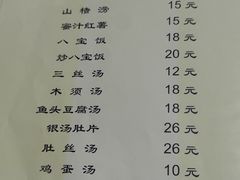 山楂涝 15 元
蜜汁红薯 15 元
八宝饭 18 元
炒八宝饭 20 元
三丝汤 12 元
木须汤 18 元
鱼头豆腐汤 18 元
银汤肚片 26 元
肚丝汤 26 元
鸡蛋汤 10 元